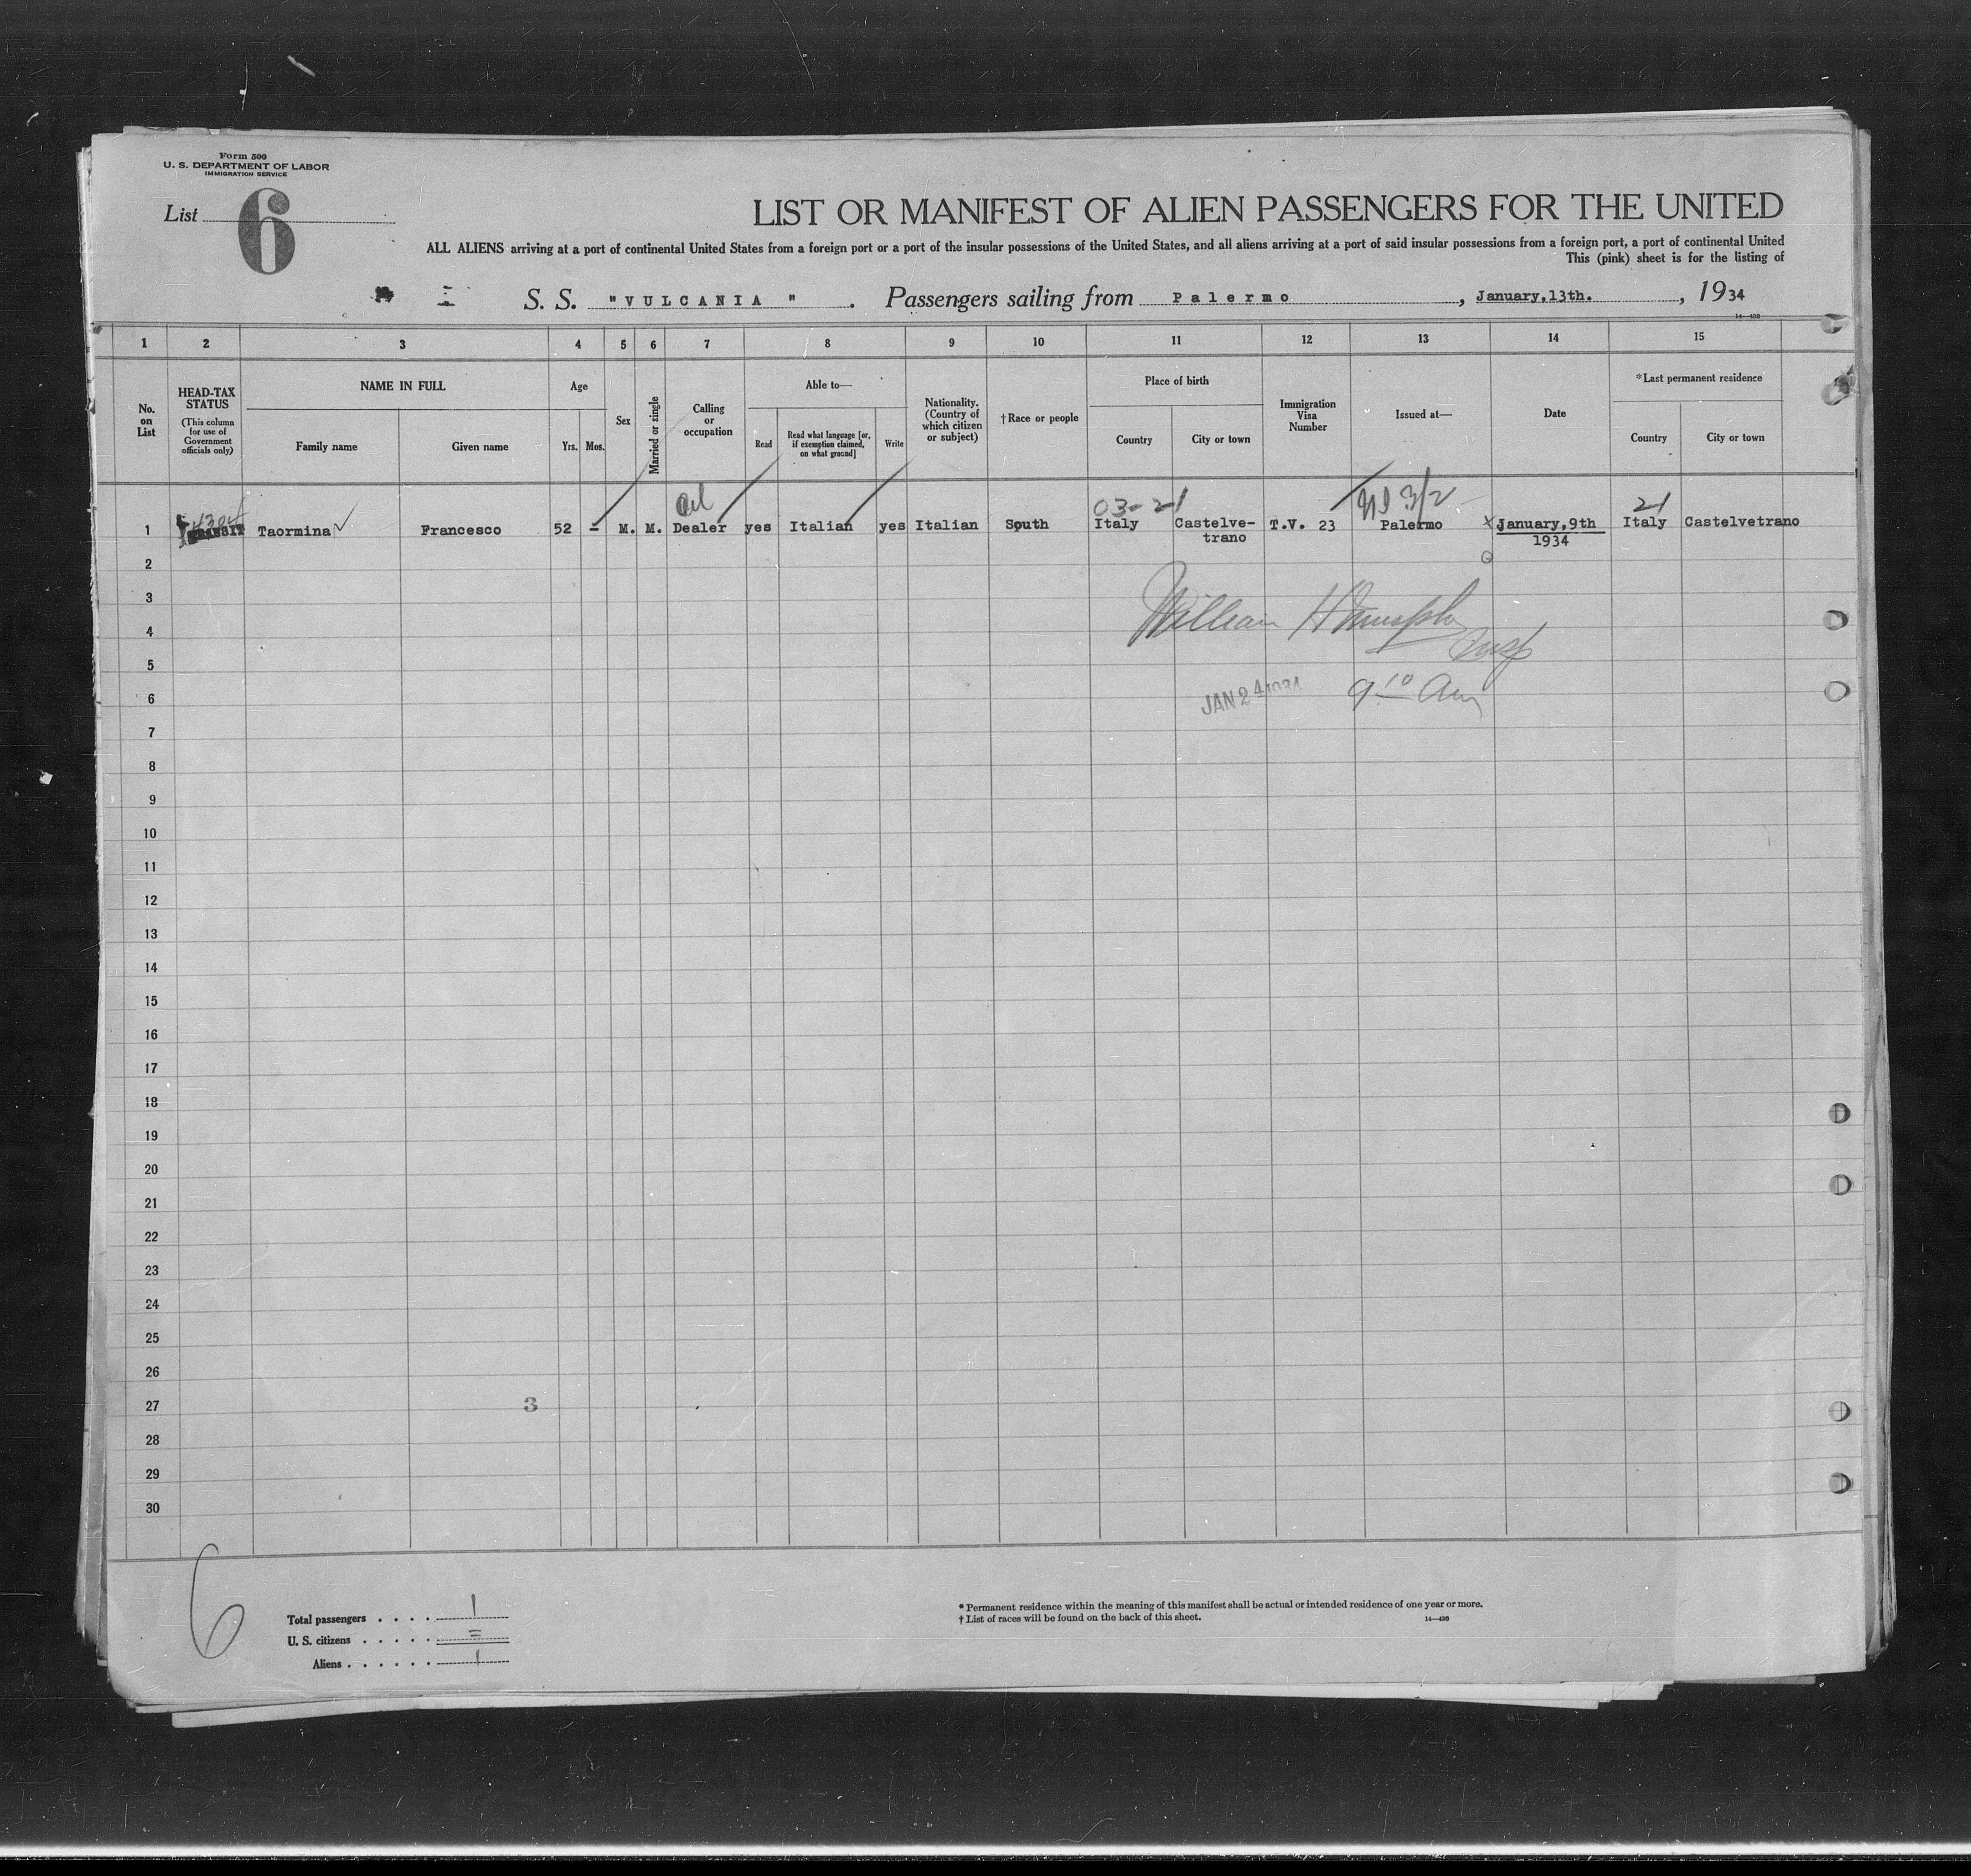 Form 500
U. S. DEPARTMENT OF LABOR
IMMIGRATION SERVICE
List 6
LIST OR MANIFEST OF ALIEN PASSENGERS FOR THE UNITED
ALL ALIENS arriving at a port of continental United States from a foreign port or a port of the insular possessions of the United States, and all aliens arriving at a port of said insular possessions from a foreign port, a port of continental United
This (pink) sheet is for the listing of
S. S. "VULCANIA". Passengers sailing from Palermo, January, 13th., 1934
14—430
1 2 3 4 5 6 7 8 9 10 11 12 13 14 15
No. on List
HEAD-TAX STATUS
(This column for use of Government officials only)
NAME IN FULL
Family name
Given name
Age
Yrs.
Mos.
Sex
Married or single
Calling or occupation
Able to—
Read
Read what language [or, if exemption claimed, on what ground]
Write
Nationality. (Country of which citizen or subject)
†Race or people
Place of birth
Country
City or town
Immigration Visa Number
Issued at—
Date
*Last permanent residence
Country
City or town
03-21 3/2 21
1 Taormina Francesco 52 - M. M. Dealer yes Italian yes Italian South Italy Castelve-trano T.V. 23 Palermo January, 9th 1934 Italy Castelvetrano
2
3
William H
4
Insp
5
6
JAN 24 1934 9 10 Am
7
8
9
10
11
12
13
14
15
16
17
18
19
20
21
22
23
24
25
26
27
3
28
29
30
6
Total passengers . . . . 1
U. S. citizens . . . . . =
Aliens . . . . . . 1
* Permanent residence within the meaning of this manifest shall be actual or intended residence of one year or more.
† List of races will be found on the back of this sheet.
14—430